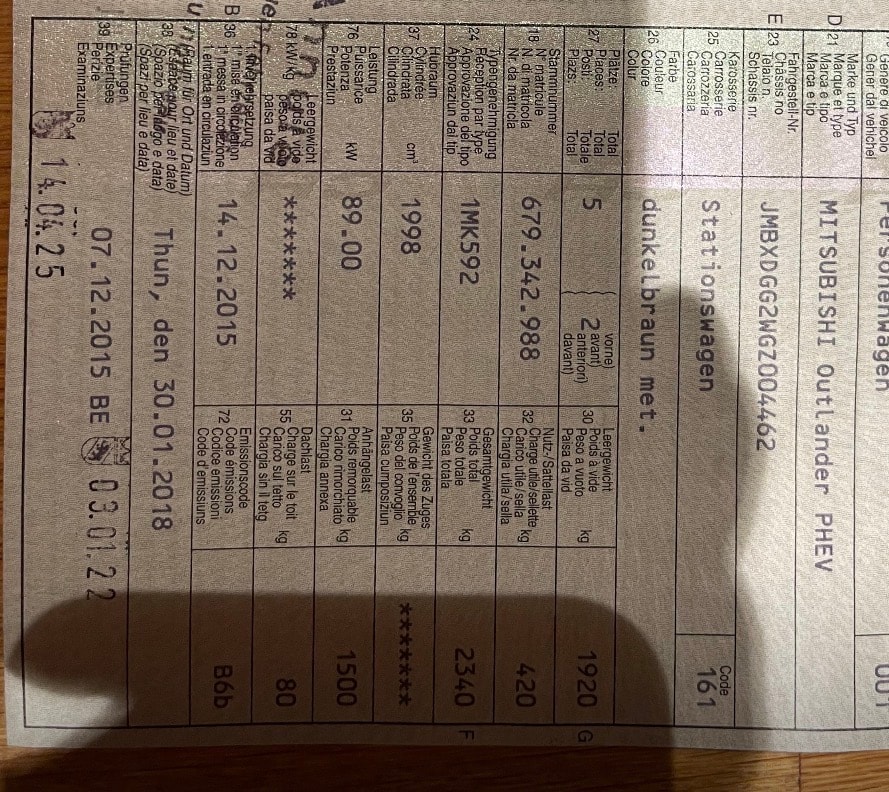 Genere di veicolo
Gener dal vehichel
Personenwagen
001
D 21 Marke und Typ
Marque et type
Marca e tipo
Marca e tip
MITSUBISHI Outlander PHEV
E 23 Fahrgestell-Nr.
Châssis no
Telaio n.
Schassis nr.
JMBXDGG2WGZ004462
25 Karosserie
Carrosserie
Carrozzeria
Carossaria
Stationswagen
Code
161
26 Farbe
Couleur
Colore
Colur
dunkelbraun met.
27 Plätze: Total
Places: Total
Posti: Totale
Plazs: Total
5
2
vorne)
avant)
anteriori)
davant)
30 Leergewicht
Poids à vide
Peso a vuoto
Paisa da vid
kg
1920 G
18 Stammnummer
N° matricule
N. di matricola
Nr. da matricla
679.342.988
32 Nutz-/Sattellast
Charge utile/sellette
Carico utile/sella
Chargia utila/sella
kg
420
24 Typengenehmigung
Réception par type
Approvazione del tipo
Approvaziun dal tip
1MK592
33 Gesamtgewicht
Poids total
Peso totale
Paisa totala
kg
2340 F
37 Hubraum
Cylindrée
Cilindrata
Cilindrada
cm³
1998
35 Gewicht des Zuges
Poids de l'ensemble
Peso del convoglio
Paisa cumposiziun
kg
*******
76 Leistung
Puissance
Potenza
Prestaziun
kW
89.00
31 Anhängelast
Poids remorquable
Carico rimorchiato
Chargia annexa
kg
1500
78 kW/kg
Leergewicht
poids à vide
peso a vuoto
paisa da vid
*******
55 Dachlast
Charge sur le toit
Carico sul tetto
Chargia sin il tetg
kg
80
B 36 1. Inverkehrsetzung
1re mise en circulation
1a messa in circolazione
1. entrada en circulaziun
14.12.2015
72 Emissionscode
Code émissions
Codice emissioni
Code d'emissiuns
B6b
38 (Raum für Ort und Datum)
(Espace pour lieu et date)
(Spazio per luogo e data)
(Spazi per lieu e data)
Thun, den 30.01.2018
39 Prüfungen
Expertises
Perizie
Examinaziuns
07.12.2015 BE 03.01.22
14.04.25